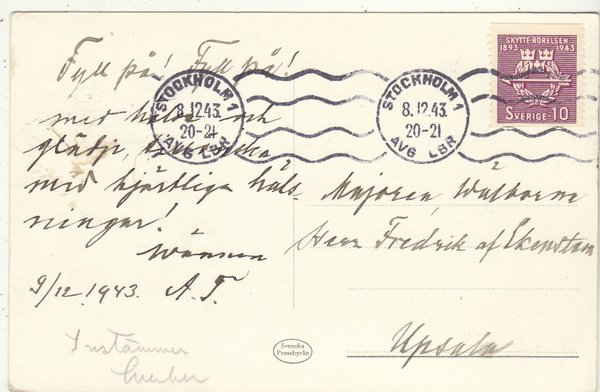 Fyll på! Fyll på!
med hälsa och
glädje, önska
med hjärtliga häls-
ningar!
Wännen
9/12 1943. A.F.
Instämmer
STOCKHOLM 1
8.12.43.
20-21
AVG LBR
STOCKHOLM 1
8.12.43.
20-21
AVG LBR
SKYTTE-RÖRELSEN
1893 1943
SVERIGE 10
Majoren, Wälborne
Herr Fredrik af Ekenstam
Upsala
Svenska
Pressbyrån